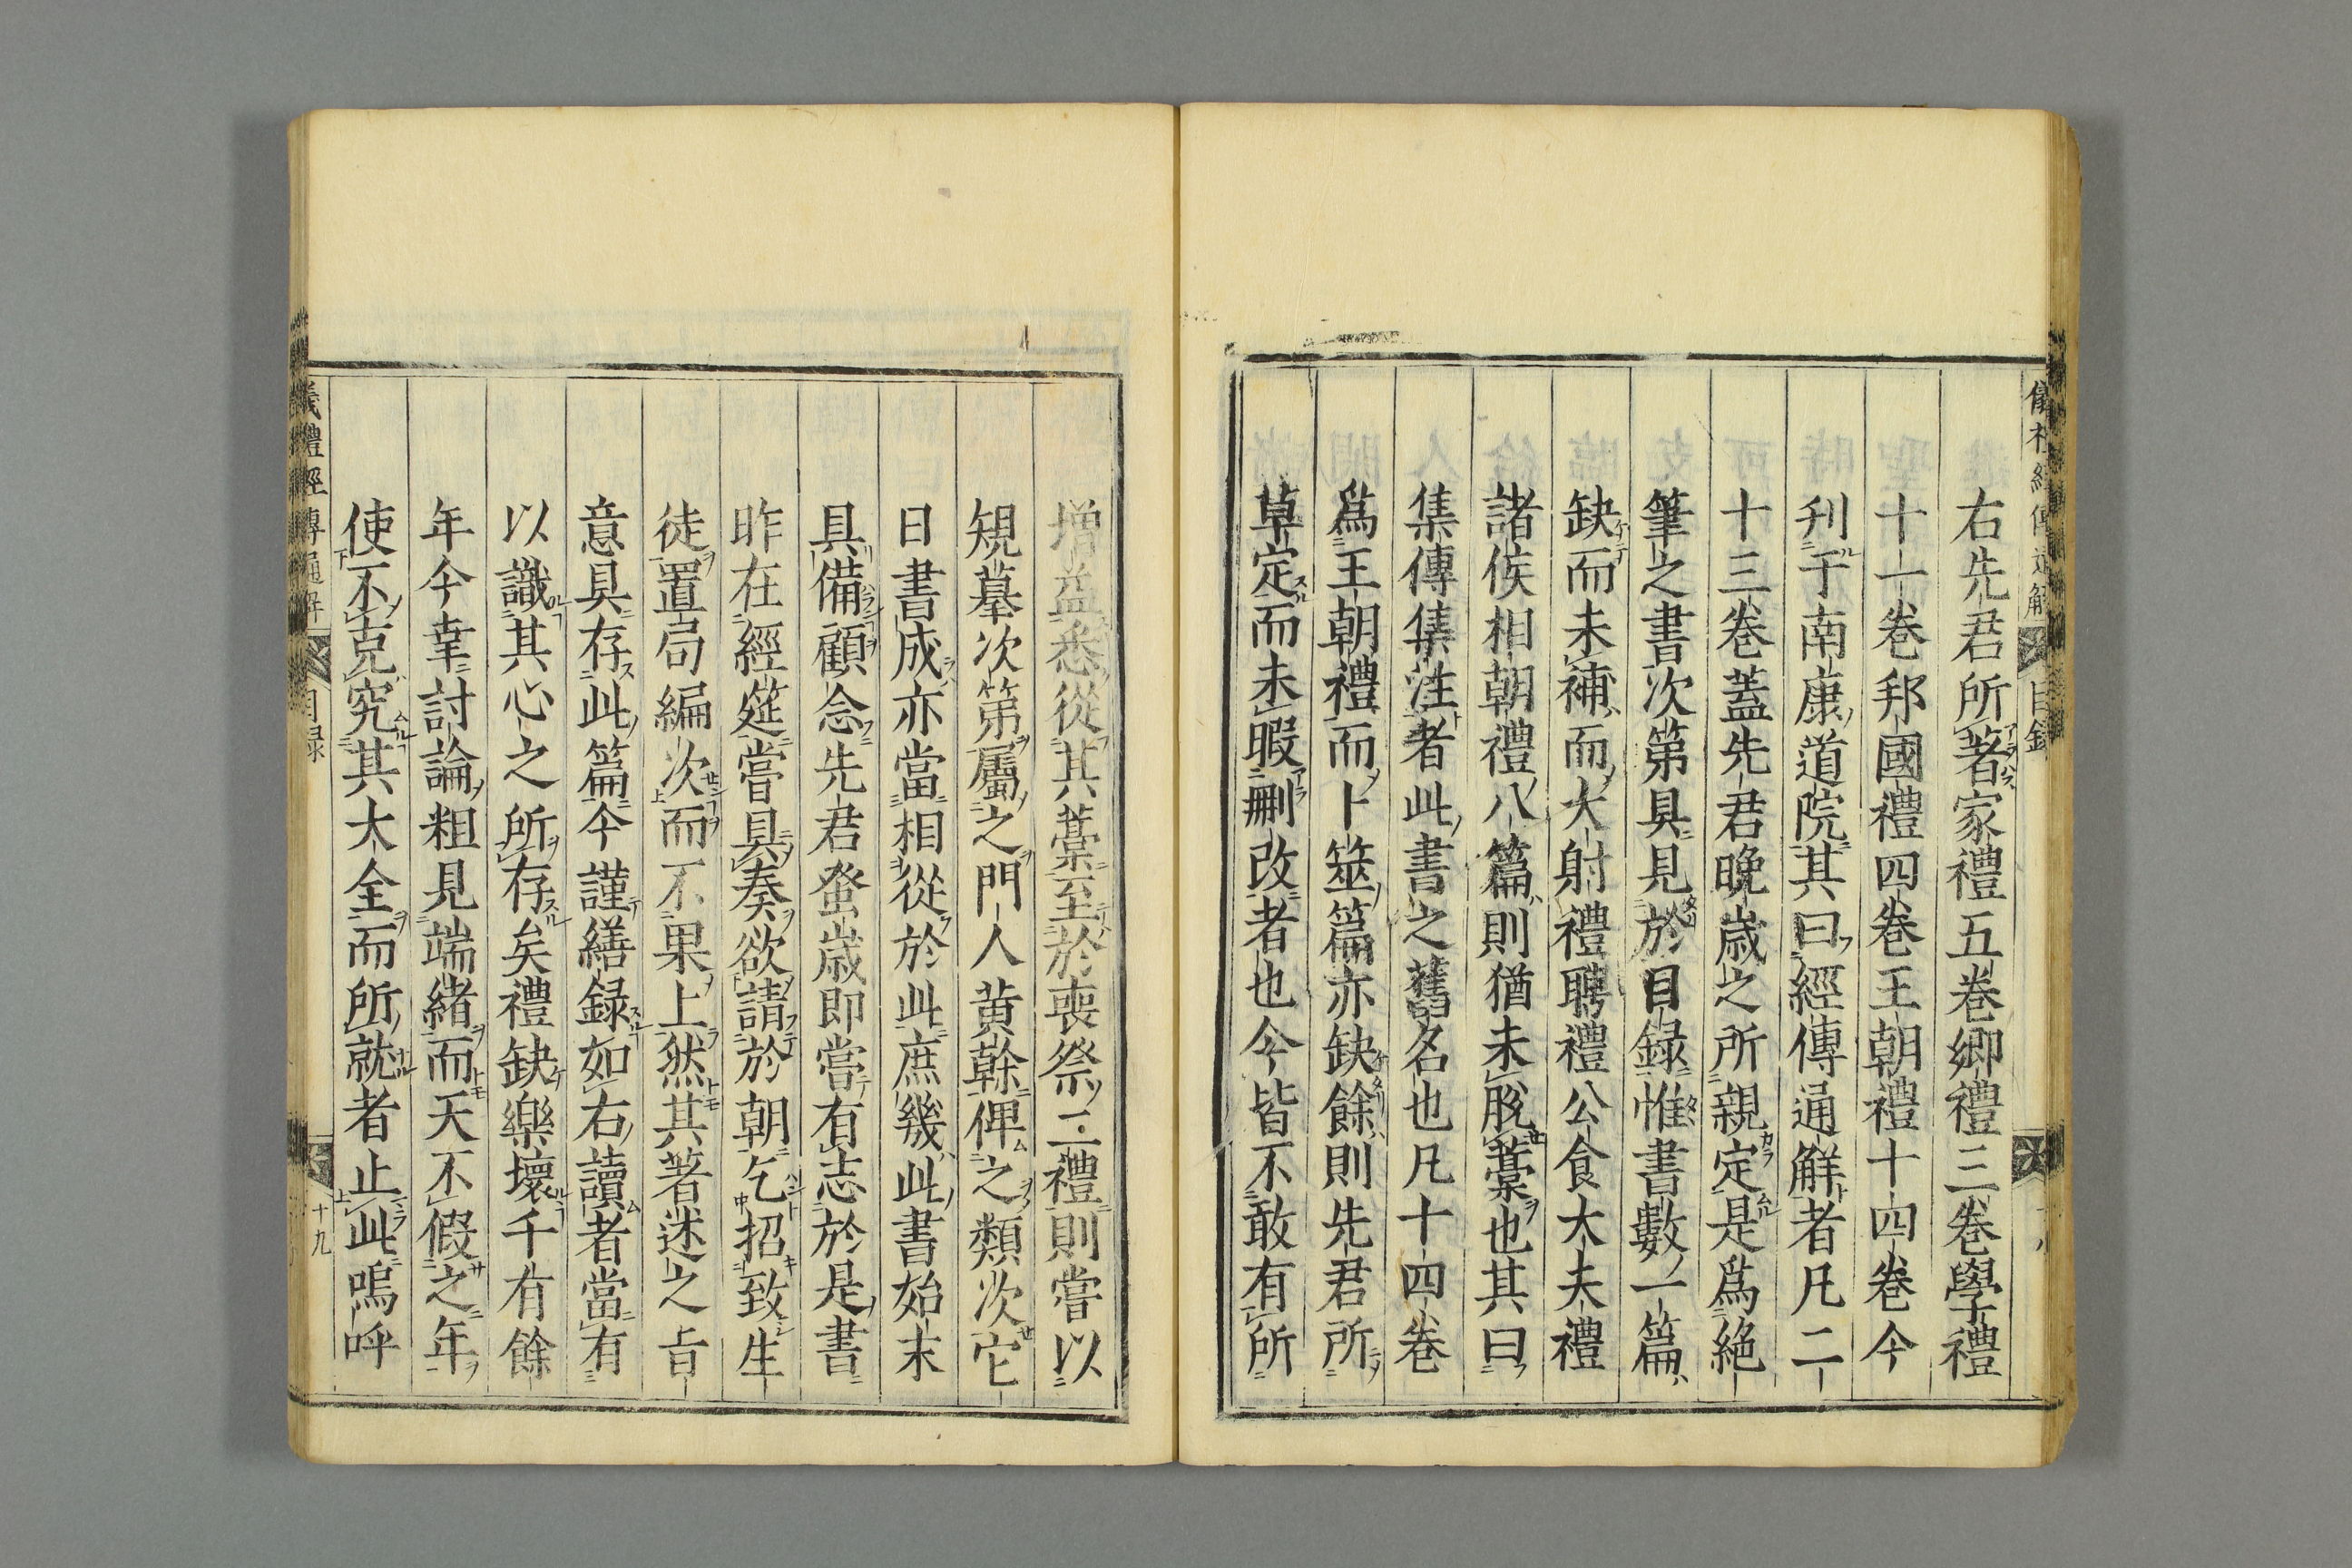 右先君所著家禮五卷鄉禮三卷學禮
十一卷邦國禮四卷王朝禮十四卷今
刋于南康道院其曰經傳通解者凡二
十三卷蓋先君晚歲之所親定是爲絶
筆之書次第具見於目録惟書數一篇
缺而未補而大射禮聘禮公食大夫禮
諸侯相朝禮八篇則猶未脫藁也其曰
集傳集注者此書之舊名也凡十四卷
爲王朝禮而卜筮篇亦缺餘則先君所
草定而未暇刪改者也今皆不敢有所
增益悉從其藁至於喪祭二禮則嘗以
規摹次第屬之門人黄榦俾之類次它
日書成亦當相從於此庶幾此書始末
具備顧念先君蚤歲即嘗有志於是書
昨在經筵嘗具奏欲請於朝乞招致生
徒置局編次而不果上然其著述之㫖
意具存此篇今謹繕録如右讀者當有
以識其心之所存矣禮缺樂壞千有餘
年今幸討論粗見端緒而天不假之年
使不克究其大全而所就者止此嗚呼
儀禮經傳通解
目録
十九